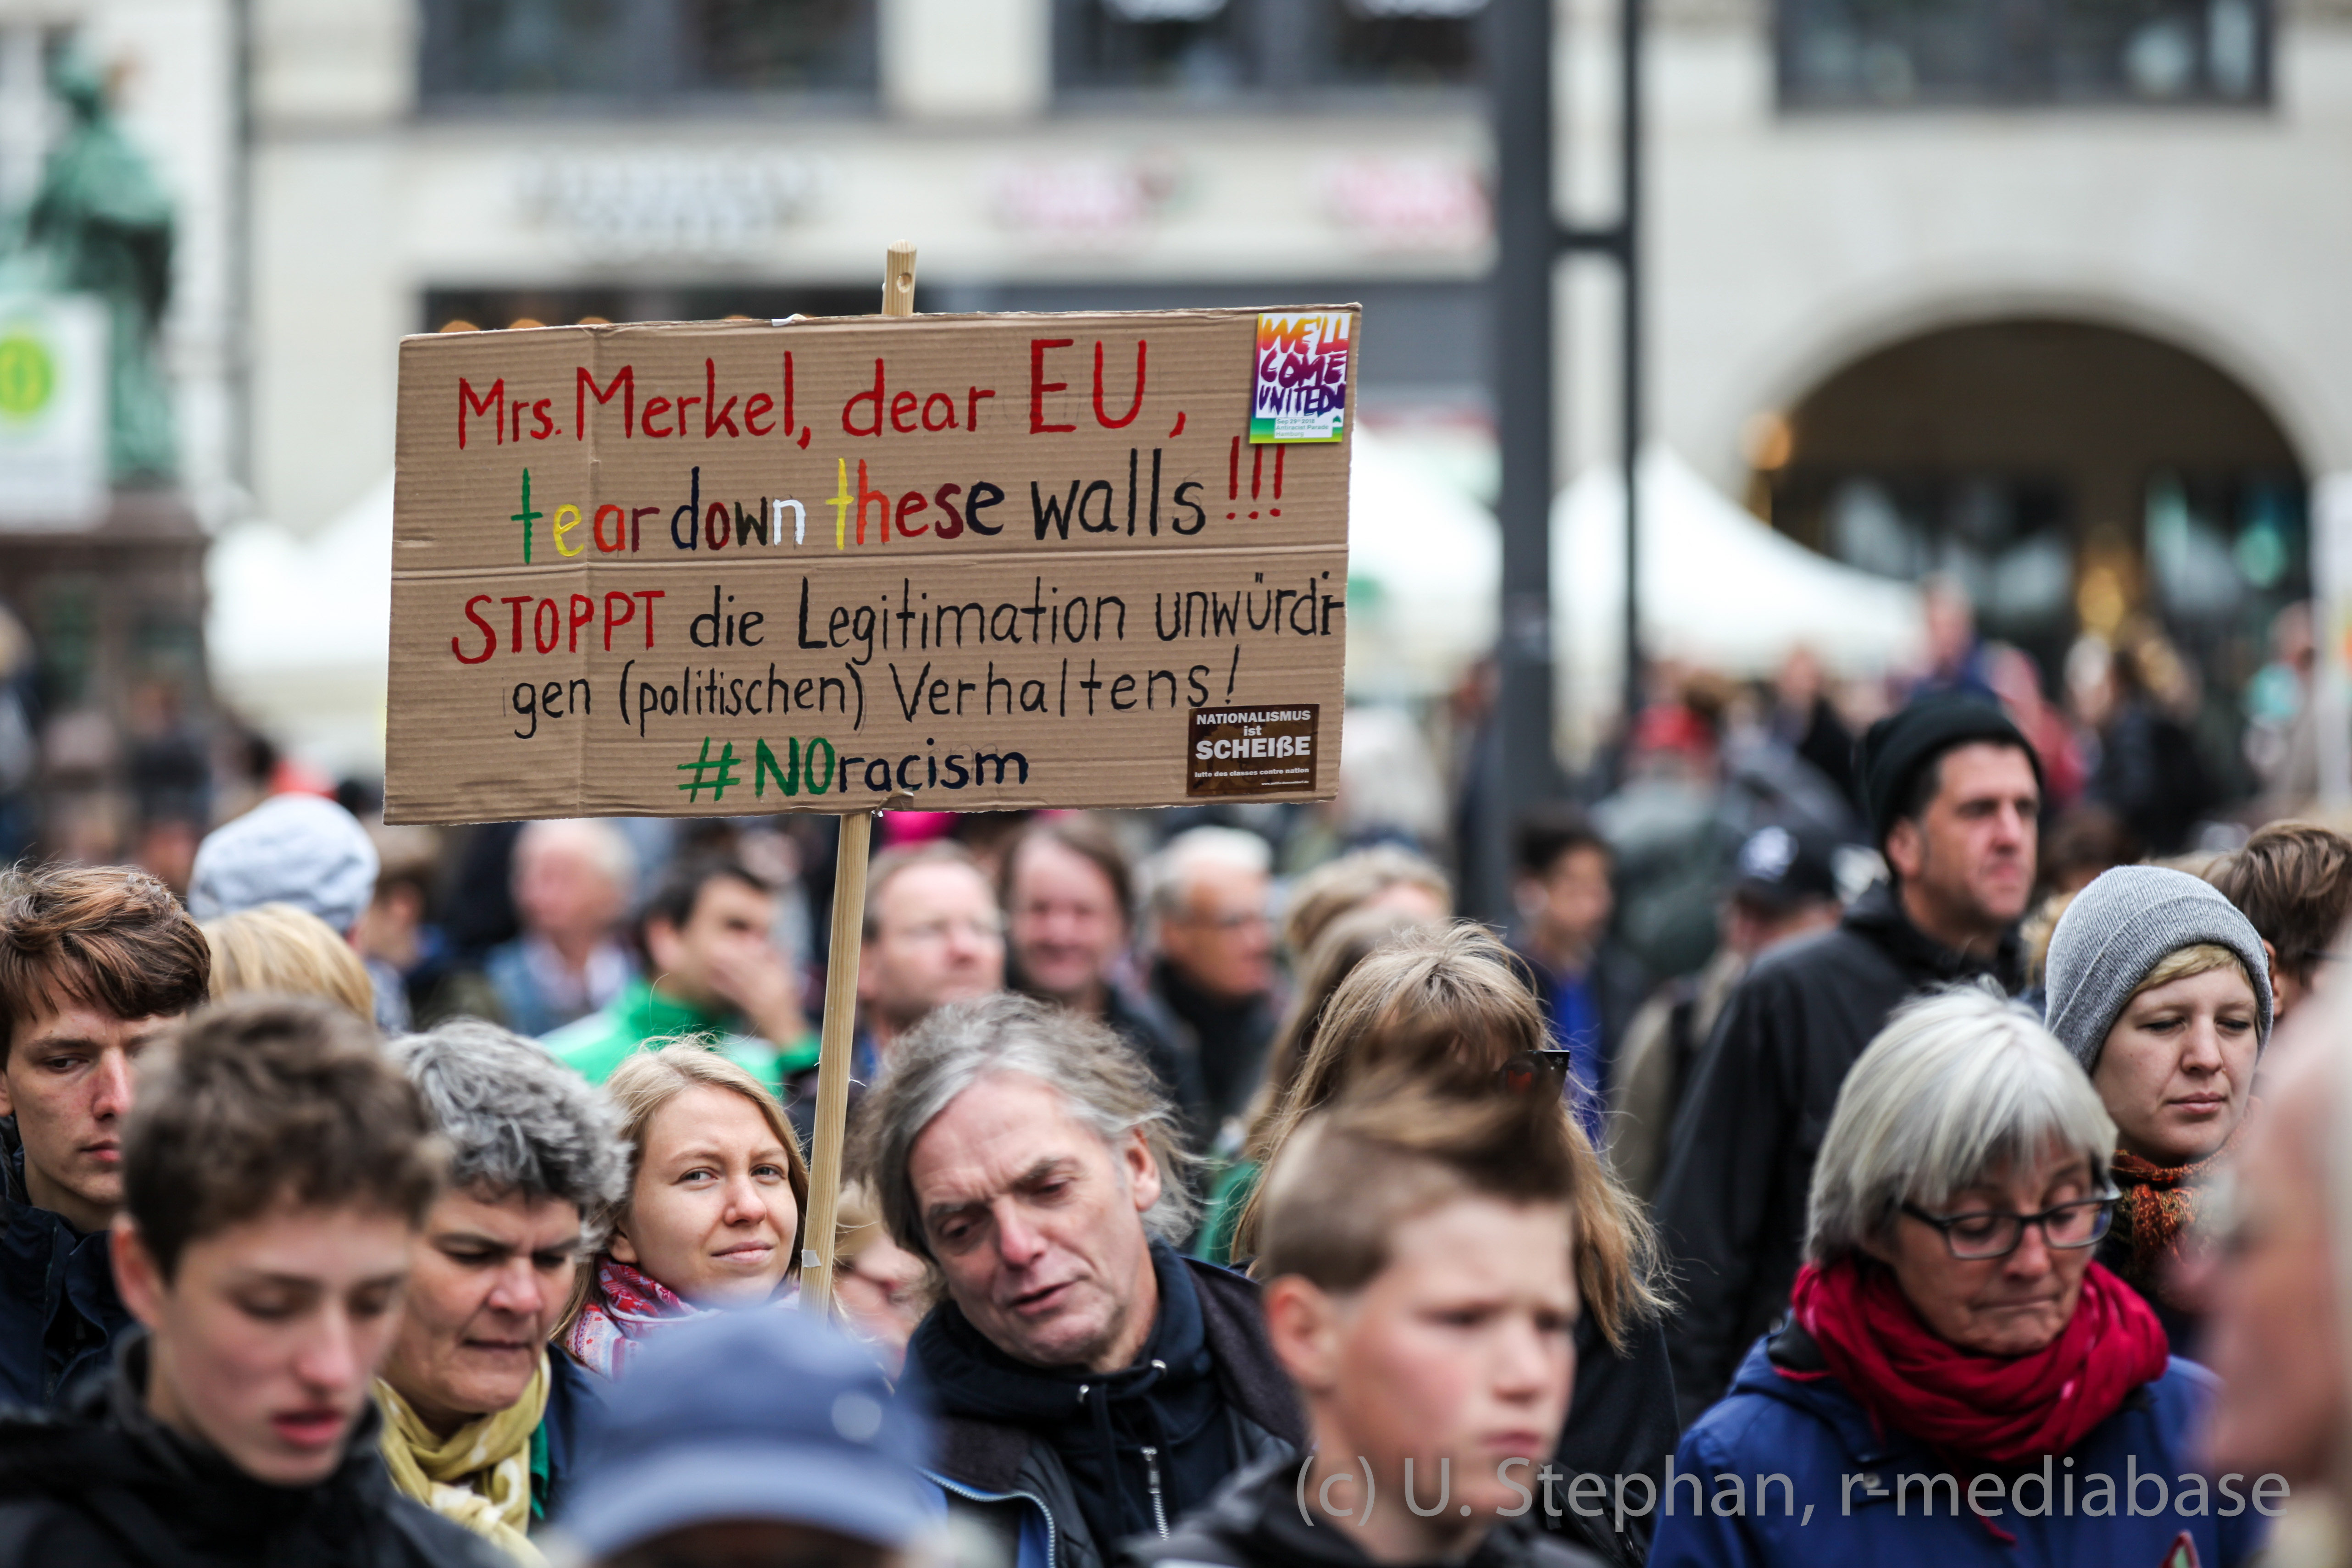 Mrs. Merkel, dear EU,
tear down these walls!!!
STOPPT die Legitimation unwürdi-
gen (politischen) Verhaltens!
#NOracism
WE'LL
COME
UNITED
Sep 29th 2018
Antiracist Parade
Hamburg
NATIONALISMUS
ist
SCHEIßE
lutte des classes contre nation
(c) U. Stephan, r-mediabase